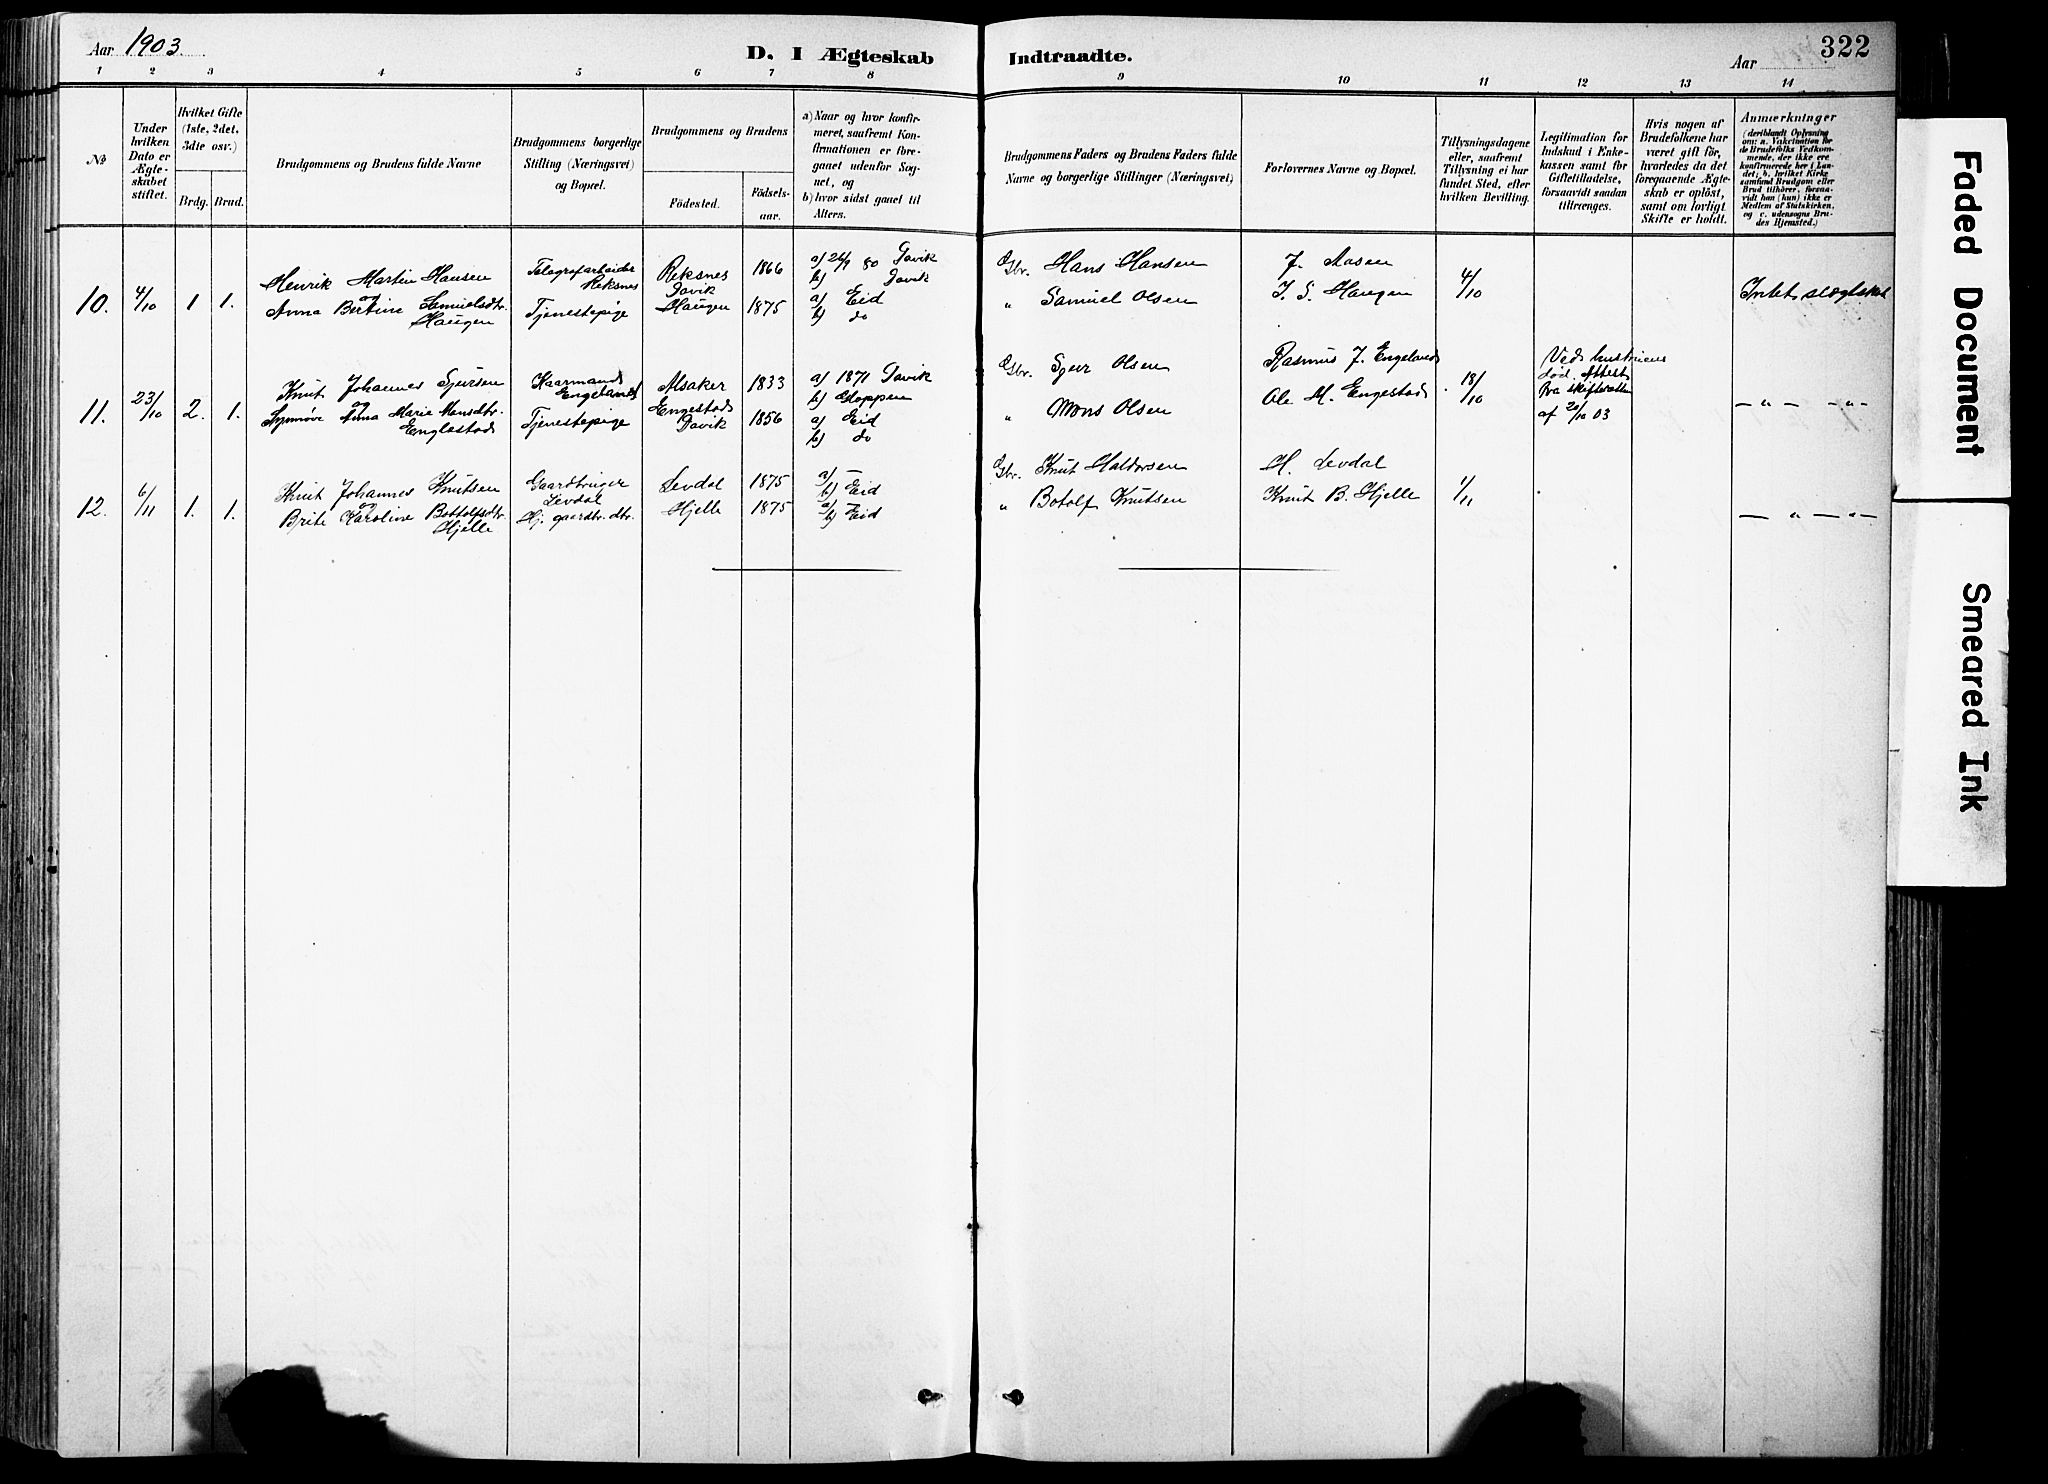 Aar 1903.
D. I Ægteskab Indtraadte.
Aar
322
1 2 3 4 5 6 7 8 9 10 11 12 13 14
No
Under hvilken Dato er Ægteskabet stiftet.
Hvilket Gifte (1ste, 2det, 3die osv.)
Brdg. Brud.
Brudgommens og Brudens fulde Navne
Brudgommens borgerlige Stilling (Næringsvei) og Bopæl.
Brudgommens og Brudens
Födested.
Födselsaar.
a) Naar og hvor konfirmeret, saafremt Konfirmationen er foregaaet udenfor Sognet, og
b) hvor sidst gaaet til Alters.
Brudgommens Faders og Brudens Faders fulde Navne og borgerlige Stillinger (Næringsvei)
Forlovernes Navne og Bopæl.
Tillysningsdagene eller, saafremt Tillysning ei har fundet Sted, efter hvilken Bevilling.
Legitimation for Indskud i Enkekassen samt for Giftetilladelse, forsaavidt saadan tiltrænges.
Hvis nogen af Brudefolkene har været gift för, hvorledes da det foregaaende Ægteskab er oplöst, samt om lovligt Skifte er holdt.
Anmærkninger
(deriblandt Oplysning om: a. Vakcination for de Brudefolks Vedkommende, der ikke ere konfirmerede her i Landet; b. hvilket Kirkesamfund Brudgom eller Brud tilhörer, forsaavidt han (hun) ikke er Medlem af Statskirken, og c. udensogns Brudes Hjemsted.)
10. 4/10 1 1.
Henrik Martin Hansen
og
Anna Bertine Samuelsdtr.
Haugen
Telegrafarbeider
Reksnes
Tjenestepige
Reksnes
Davik
Haugen
1866
1875
a) 26/9 80 Davik
b) Davik
a) Eid
b) do
Gbr. Hans Hansen
" Samuel Olsen
J. Aasen
J. S. Haugen
4/10
Intet slægtskab
11. 23/10 2. 1.
Knut Johannes Sjursen
og
Synnøve Anna Marie Monsdtr.
Englestad
Kaarmand
Engeland
Tjenestepige
Alsaker
Engestad
Davik
1833
1856
a) 1871 Davik
b) Gloppen
a) Eid
b) do
Gbr. Sjur Olsen
" Mons Olsen
Rasmus J. Engeland
Ole M. Engestad
18/10
Ved hustruens
død. Attest
fra skifteretten
af 20/10 03
— " — — " —
12. 6/11 1. 1.
Knut Johannes Knutsen
og
Brite Karoline Bottolfsdtr.
Hjelle
Gaardbruger
Levdal
Hj. gaardbr. dtr.
Levdal
Hjelle
1875
1875
a) —
b) Eid
a) —
b) Eid
Gbr. Knut Haldorsen
" Botolf Knutsen
H. Levdal
Knut B. Hjelle
1/11
— " — " —
Faded Document
Smeared Ink